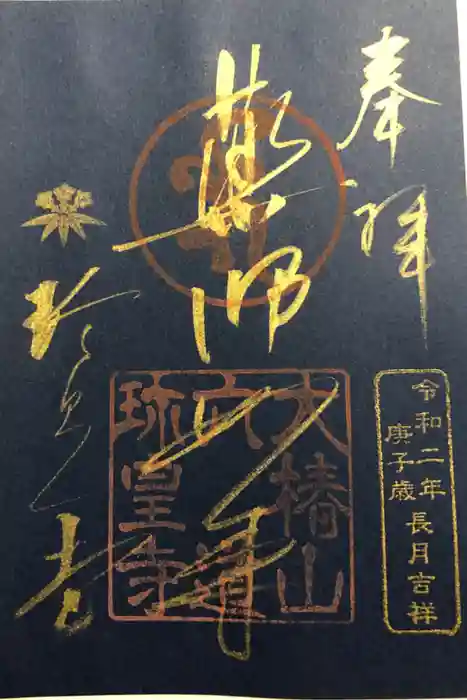 奉拝
薬師
珍皇寺
大椿山
六道
珍皇寺
令和二年長月吉祥
庚子歳